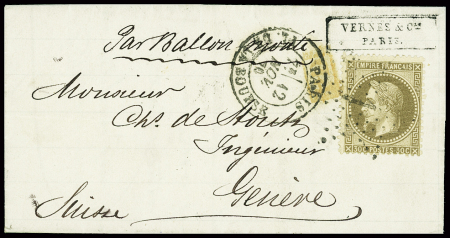 VERNES & Cie
PARIS.
Par Ballon monté
PARIS
PL. DE LA BOURSE
12
NOV.
70
EMPIRE FRANÇAIS
30C POSTES 30C
Monsieur
Chs. de
Ingénieur
Genève
Suisse